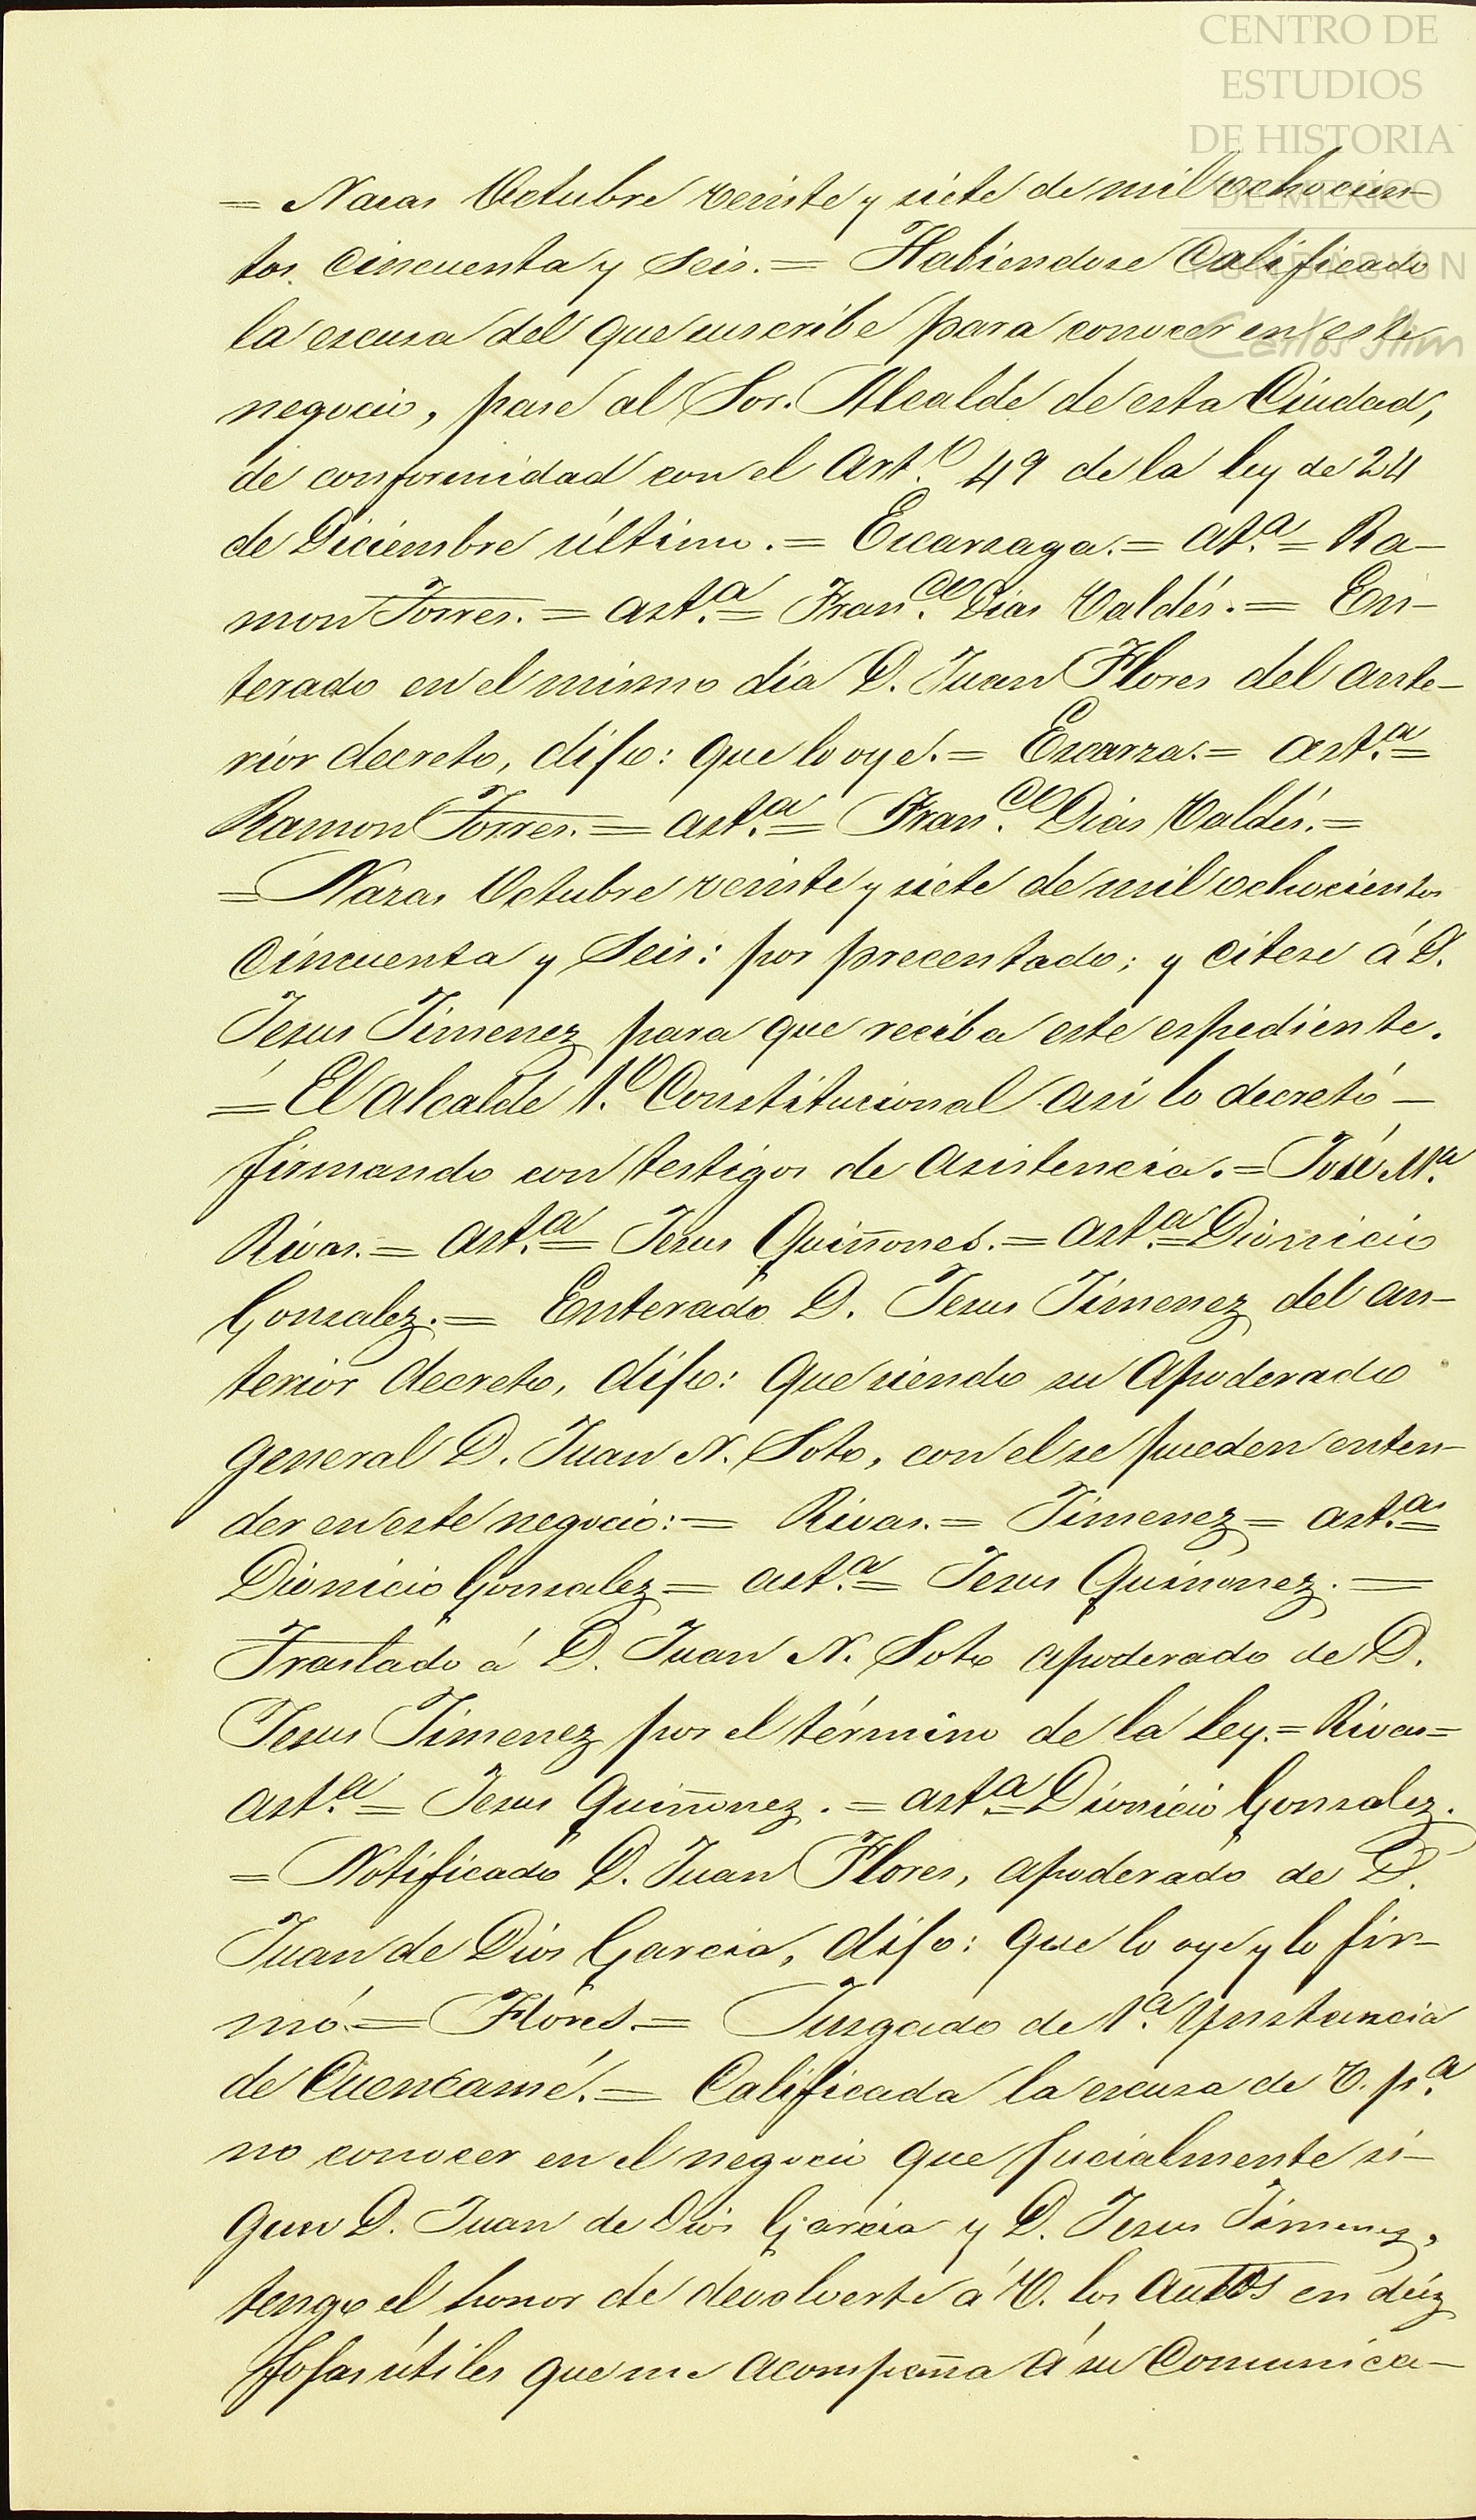 CENTRO DE
ESTUDIOS
DE HISTORIA
DE MEXICO
FUNDACION
Carlos Slim
= Nasas Octubre veinte y siete de mil ochocien-
tos cincuenta y Seis. = Habiendose Calificado
la escusa del que suscribe para conocer en este
negocio, pase al Sor. Alcalde de esta Ciudad,
de conformidad con el Art.º 49 de la ley de 24
de Diciembre último. = Escarsaga. = at.ª = Ra-
mon Torres. = ast.ª = Fran.co Dias Valdés. = En-
terado en el mismo dia D. Juan Flores del ante-
rior decreto, dijo: que lo oye. = Escarza. = ast.ª =
Ramon Torres. = ast.ª = Fran.co Dias Valdés. =
= Nazas Octubre veinte y siete de mil ochocientos
cincuenta y Seis: por precentado; y citese á D.
Jesus Jimenez para que reciba este espediente.
= El alcalde 1.º Constitucional asi lo decretó -
firmando con testigos de asistencia. = José M.ª
Rivas. = ast.ª = Jesus Quiñones. = ast.ª = Dionicio
Gonsalez. = Enterado D. Jesus Jimenez del an-
terior decreto, dijo: Que siendo su Apoderado
general D. Juan N. Soto, con el se pueden enten-
der en este negocio: = Rivas. = Jimenez = ast.as =
Dionicio Gonsalez = ast.ª = Jesus Quiñonez. =
Traslado á D. Juan N. Soto apoderado de D.
Jesus Jimenez por el término de la Ley. = Rivas =
ast.ª = Jesus Quiñonez. = ast.ª = Dionicio Gonsalez.
= Notificado D. Juan Flores, apoderado de D.
Juan de Dios Garcia, dijo: que lo oye y lo fir-
mó. = Flores. = Jusgado de 1.ª Ynstancia
de Cuencamé. = Calificada la escusa de V. p.ª
no conocer en el negocio que jucialmente si-
guen D. Juan de Dios Garcia y D. Jesus Jimenez,
tengo el honor de devolverte á V. los autos en diez
fojas útiles que me acompaña á su Comunica-